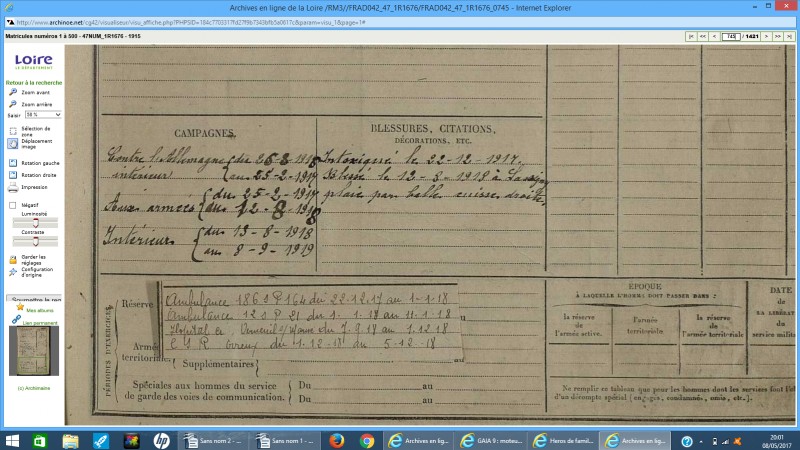 Archives en ligne de la Loire /RM3//FRAD042_47_1R1676/FRAD042_47_1R1676_0745 - Internet Explorer
Matricules numéros 1 à 500 - 47NUM_1R1676 - 1915
745 / 1421
Loire
LE DÉPARTEMENT
Retour à la recherche
Zoom avant
Zoom arrière
Saisir 38 %
Sélection de
zone
Déplacement
image
Rotation gauche
Rotation droite
Impression
Négatif
Luminosité
Contraste
Garder les
réglages
Configuration
d'origine
Mes albums
Lien permanent
(c) Archimaine
CAMPAGNES.
Contre l'Allemagne
intérieur
au 25-2-1917
Aux armées
du 25-2-1917
au 12-8-1918
Intérieur
du 13-8-1918
au 8-9-1919
BLESSURES, CITATIONS,
DÉCORATIONS, ETC.
Intoxiqué le 22-12-1917.
Blessé le 12-8-1918 à
plaie par balle cuisse droite.
PÉRIODES D'EXERCICES
Réserve
Ambulance 1862 P 164 du 22-12-17 au 1-1-18
Ambulance 12 P 21 du 1-1-18 au 11-1-18
Hopital du 7.9.18 au 1.12.18
Evreux du 1-12-17 au 5-12-18
Armée
territoriale
Supplémentaires
au
Spéciales aux hommes du service
de garde des voies de communication.
Du au
Du au
ÉPOQUE
À LAQUELLE L'HOMME DOIT PASSER DANS :
la réserve
de l'armée active.
l'armée
territoriale.
la réserve
de l'armée territoriale.
DATE
de
la LIBÉRAT
du
service milita
Ne remplir ce tableau que pour les hommes dont les services font l'ob
d'un décompte spécial (engagés, condamnés, omis, etc.).
Sans nom 2 - ...
Sans nom 1 - ...
Archives en lig...
GAIA 9 : moteu...
Heros de famil...
Archives en lig...
20:01
08/05/2017